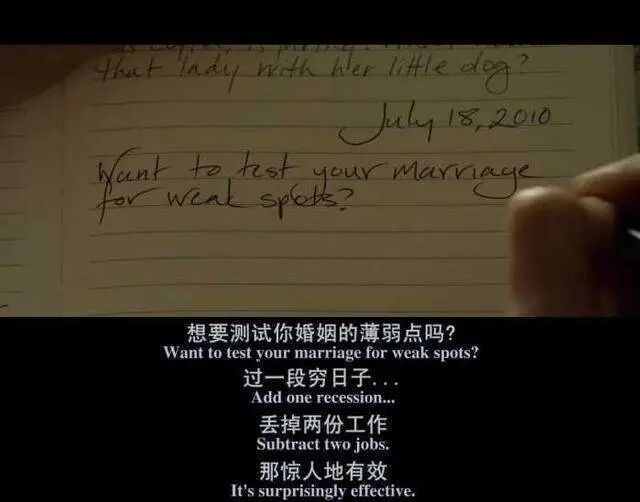 that lady with her little dog?
July 18, 2010
Want to test your marriage
for weak spots?
想要测试你婚姻的薄弱点吗?
Want to test your marriage for weak spots?
过一段穷日子...
Add one recession...
丢掉两份工作
Subtract two jobs.
那惊人地有效
It's surprisingly effective.